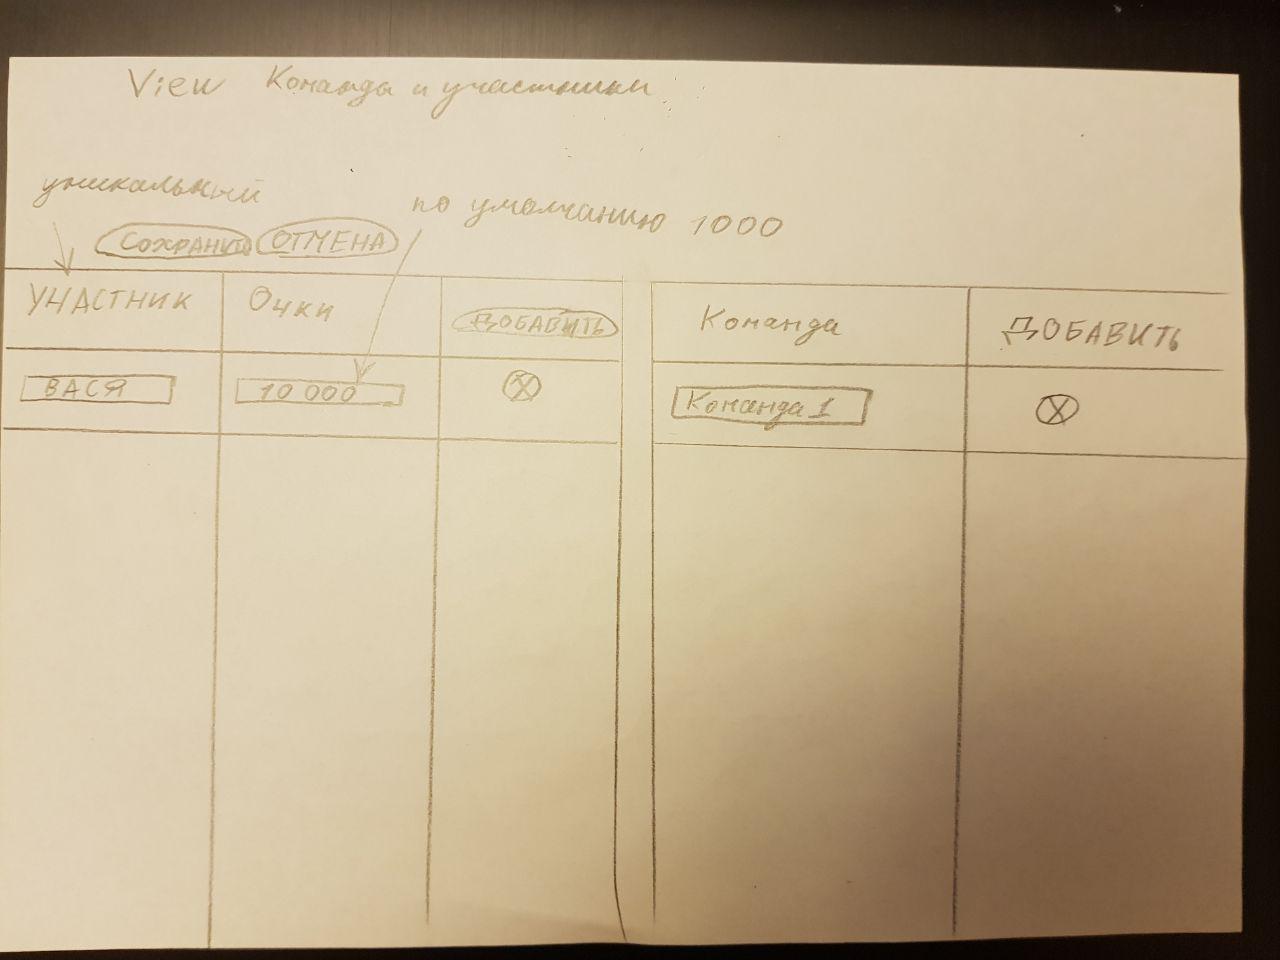 View Команды и участники
уникальный
по умолчанию 1000
СОХРАНИТЬ ОТМЕНА
УЧАСТНИК Очки ДОБАВИТЬ Команда ДОБАВИТЬ
ВАСЯ 10 000 X Команда 1 X